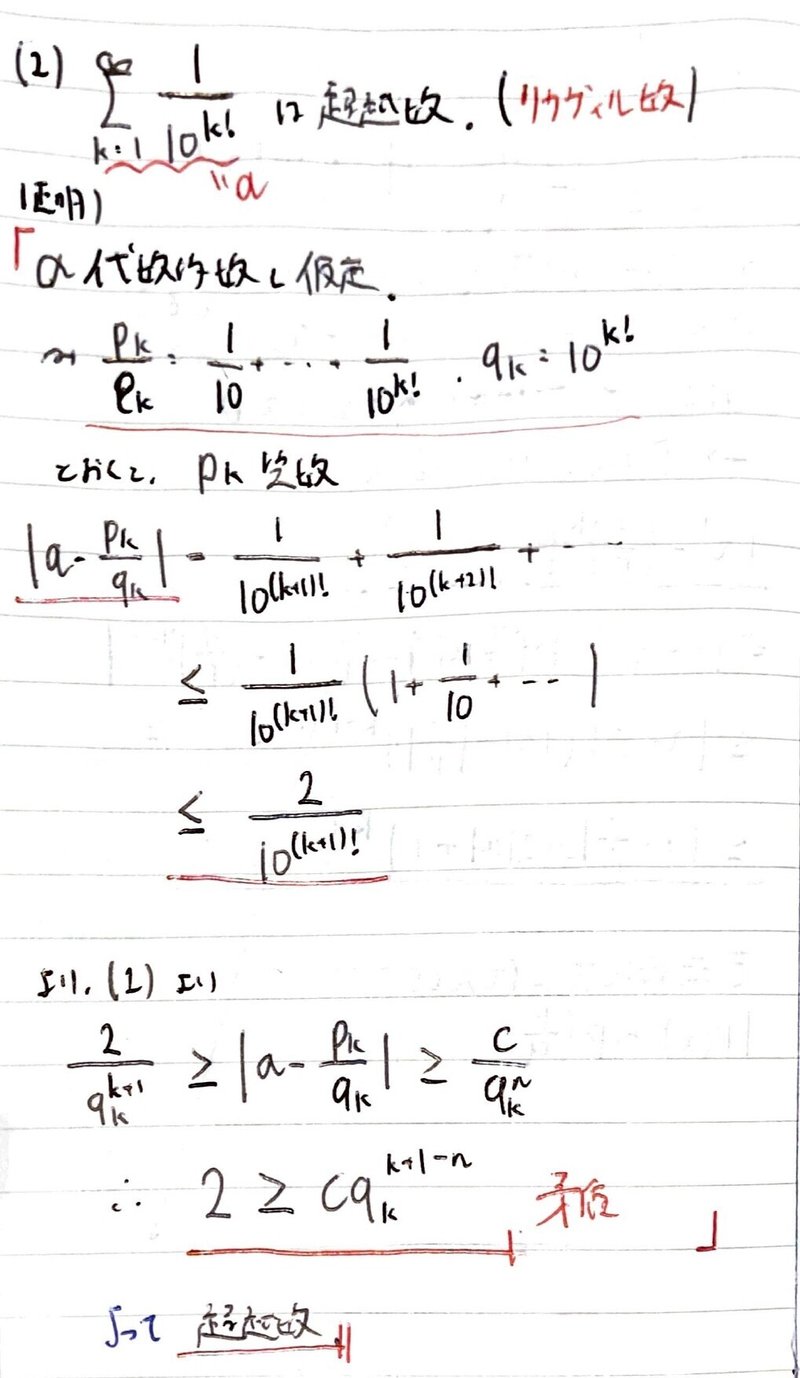 (2) ∞∑k=1 1/10^{k!} は 超越数. (リウヴィル数)
"a
証明)
「a 代数的数と仮定.
~> p_k/q_k = 1/10 + ... + 1/10^{k!} . q_k = 10^{k!}
とおくと, p_k 整数
|a - p_k/q_k| = 1/10^{(k+1)!} + 1/10^{(k+2)!} + ...
≤ 1/10^{(k+1)!} (1 + 1/10 + ...)
≤ 2/10^{(k+1)!}
より, (1) より
2/q_k^{k+1} ≥ |a - p_k/q_k| ≥ c/q_k^n
∴ 2 ≥ cq_k^{k+1-n} 矛盾 」
よって 超越数